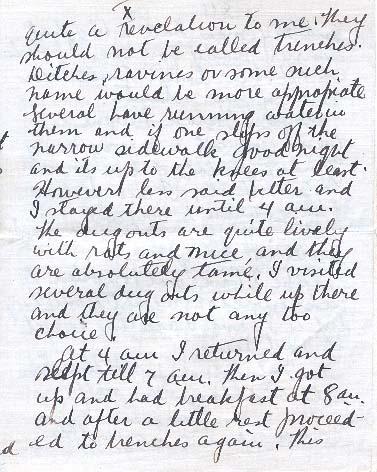 x
quite a revelation to me. They
should not be called trenches.
Ditches, ravines or some such
name would be more appropiate
Several have running water in
them and if one slips off the
narrow sidewalk, good night
and its up to the knees at least.
However less said better and
I stayed there until 4 am.
The dug outs are quite lively
with rats and mice, and they
are absolutely tame. I visited
several dug outs while up there
and they are not any too
choice.
At 4 am I returned and
slept till 7 am. Then I got
up and had breakfast at 8 am.
and after a little rest proceed-
ed to trenches again. This